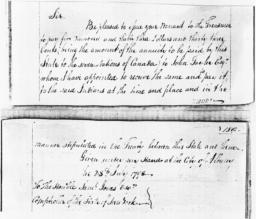 Sir.
Be pleased to issue your Warrant to the Treasurer
to pay five hundred and thirty three Dollars and thirty three
Cents, being the amount of the annuity to be paid by this
State to the seven nations of Canada, to John Esqr
whom I have appointed to receive the same and pay it
to the said Indians at the time and place and in the
manner stipulated in the Treaty between this State and them.
Given under my Hand at the City of Albany
the 28th July 179
To The Honble Saml Jones Esqr
Comptroller of the State of New York